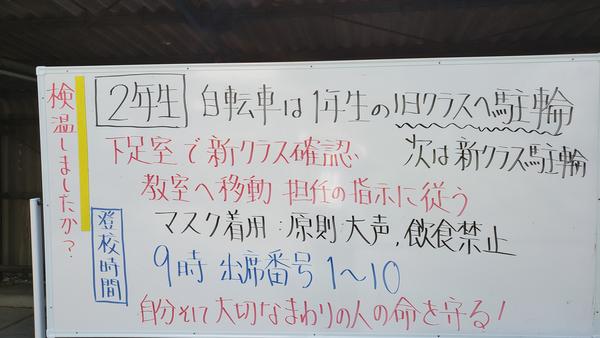 検温しましたか?
2年生 自転車は1年生の旧クラスへ駐輪
下足室で新クラス確認 次は新クラス駐輪
教室へ移動 担任の指示に従う
マスク着用:原則 大声,飲食禁止
登校時間
9時 出席番号1~10
自分そして大切なまわりの人の命を守る!